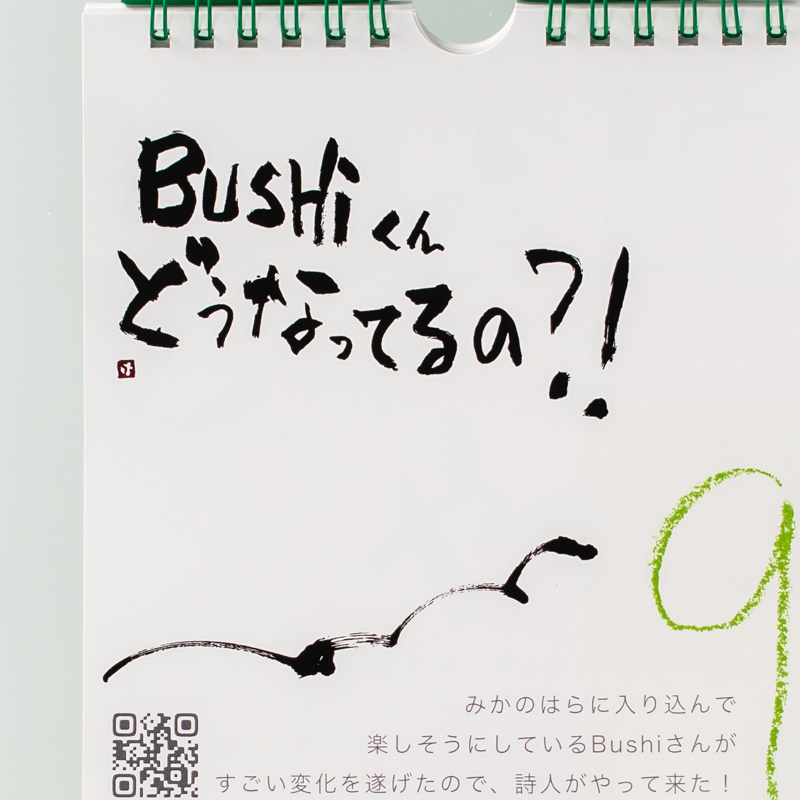 BUSHiくん
どうなってるの?!
9
みかのはらに入り込んで
楽しそうにしているBushiさんが
すごい変化を遂げたので、詩人がやって来た!